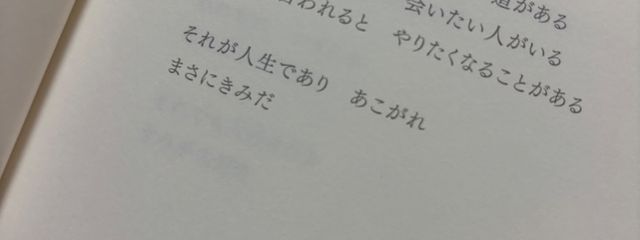 道がある
会いたい人がいる
われると　やりたくなることがある
それが人生であり　あこがれ
まさにきみだ